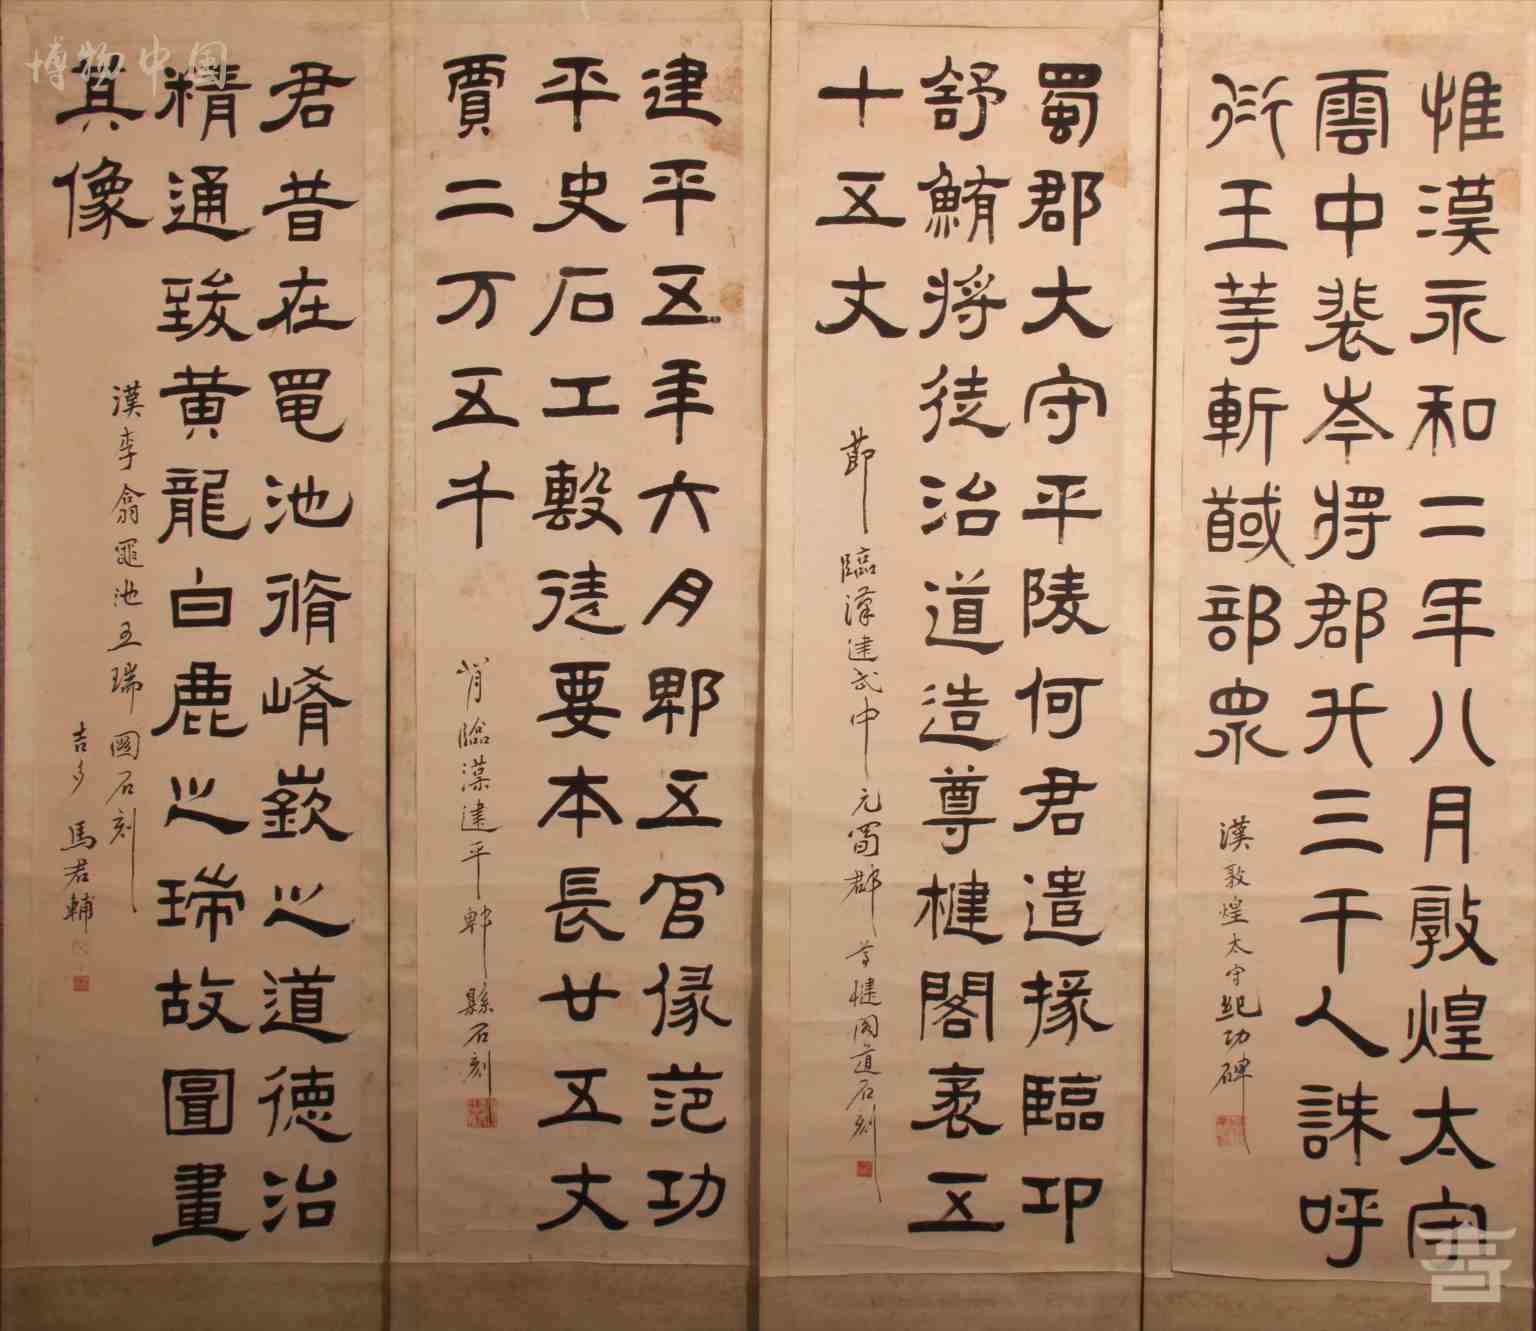 惟漢永和二年八月敦煌太守
雲中裴岑將郡兵三千人誅呼
衍王等斬馘部眾
漢敦煌太守紀功碑
蜀郡大守平陵何君遣掾臨邛
舒鮪將徒治道造尊楗閣袤五
十五丈
節臨漢建武中元蜀郡尊楗閣道石刻
建平五年六月郫五官掾范功
平史石工㲉徒要本長廿五丈
賈二万五千
肖臨漢建平郫縣石刻
君昔在黽池脩崤嶔之道德治
精通致黄龍白鹿之瑞故圖畫
其像
漢李翕黽池五瑞圖石刻
吉多 馬君輔
博物中国